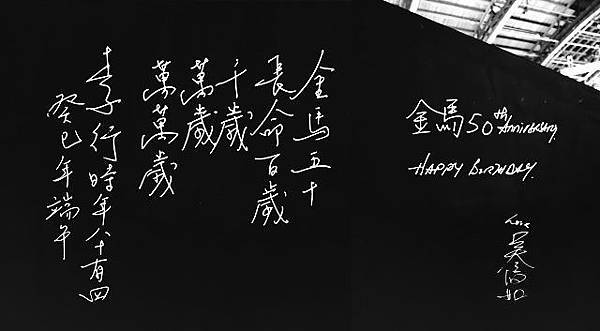 金馬五十
長命百歲
千歲
萬歲
萬萬歲
李行時年八十有四
癸巳年端午
金馬50th ANNIVERSARY.
HAPPY BIRTHDAY.
Love
吳